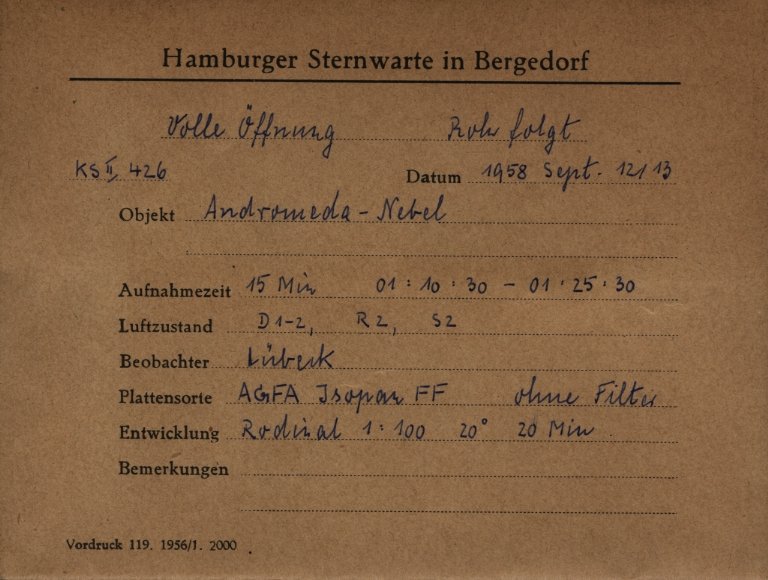 Hamburger Sternwarte in Bergedorf
Volle Öffnung Rohr folgt
KS II 426 Datum 1958 Sept. 12/13
Objekt Andromeda-Nebel
Aufnahmezeit 15 Min 01:10:30 - 01:25:30
Luftzustand D1-2, R2, S2
Beobachter Lübeck
Plattensorte AGFA Isopan FF ohne Filter
Entwicklung Rodinal 1:100 20° 20 Min
Bemerkungen
Vordruck 119. 1956/1. 2000